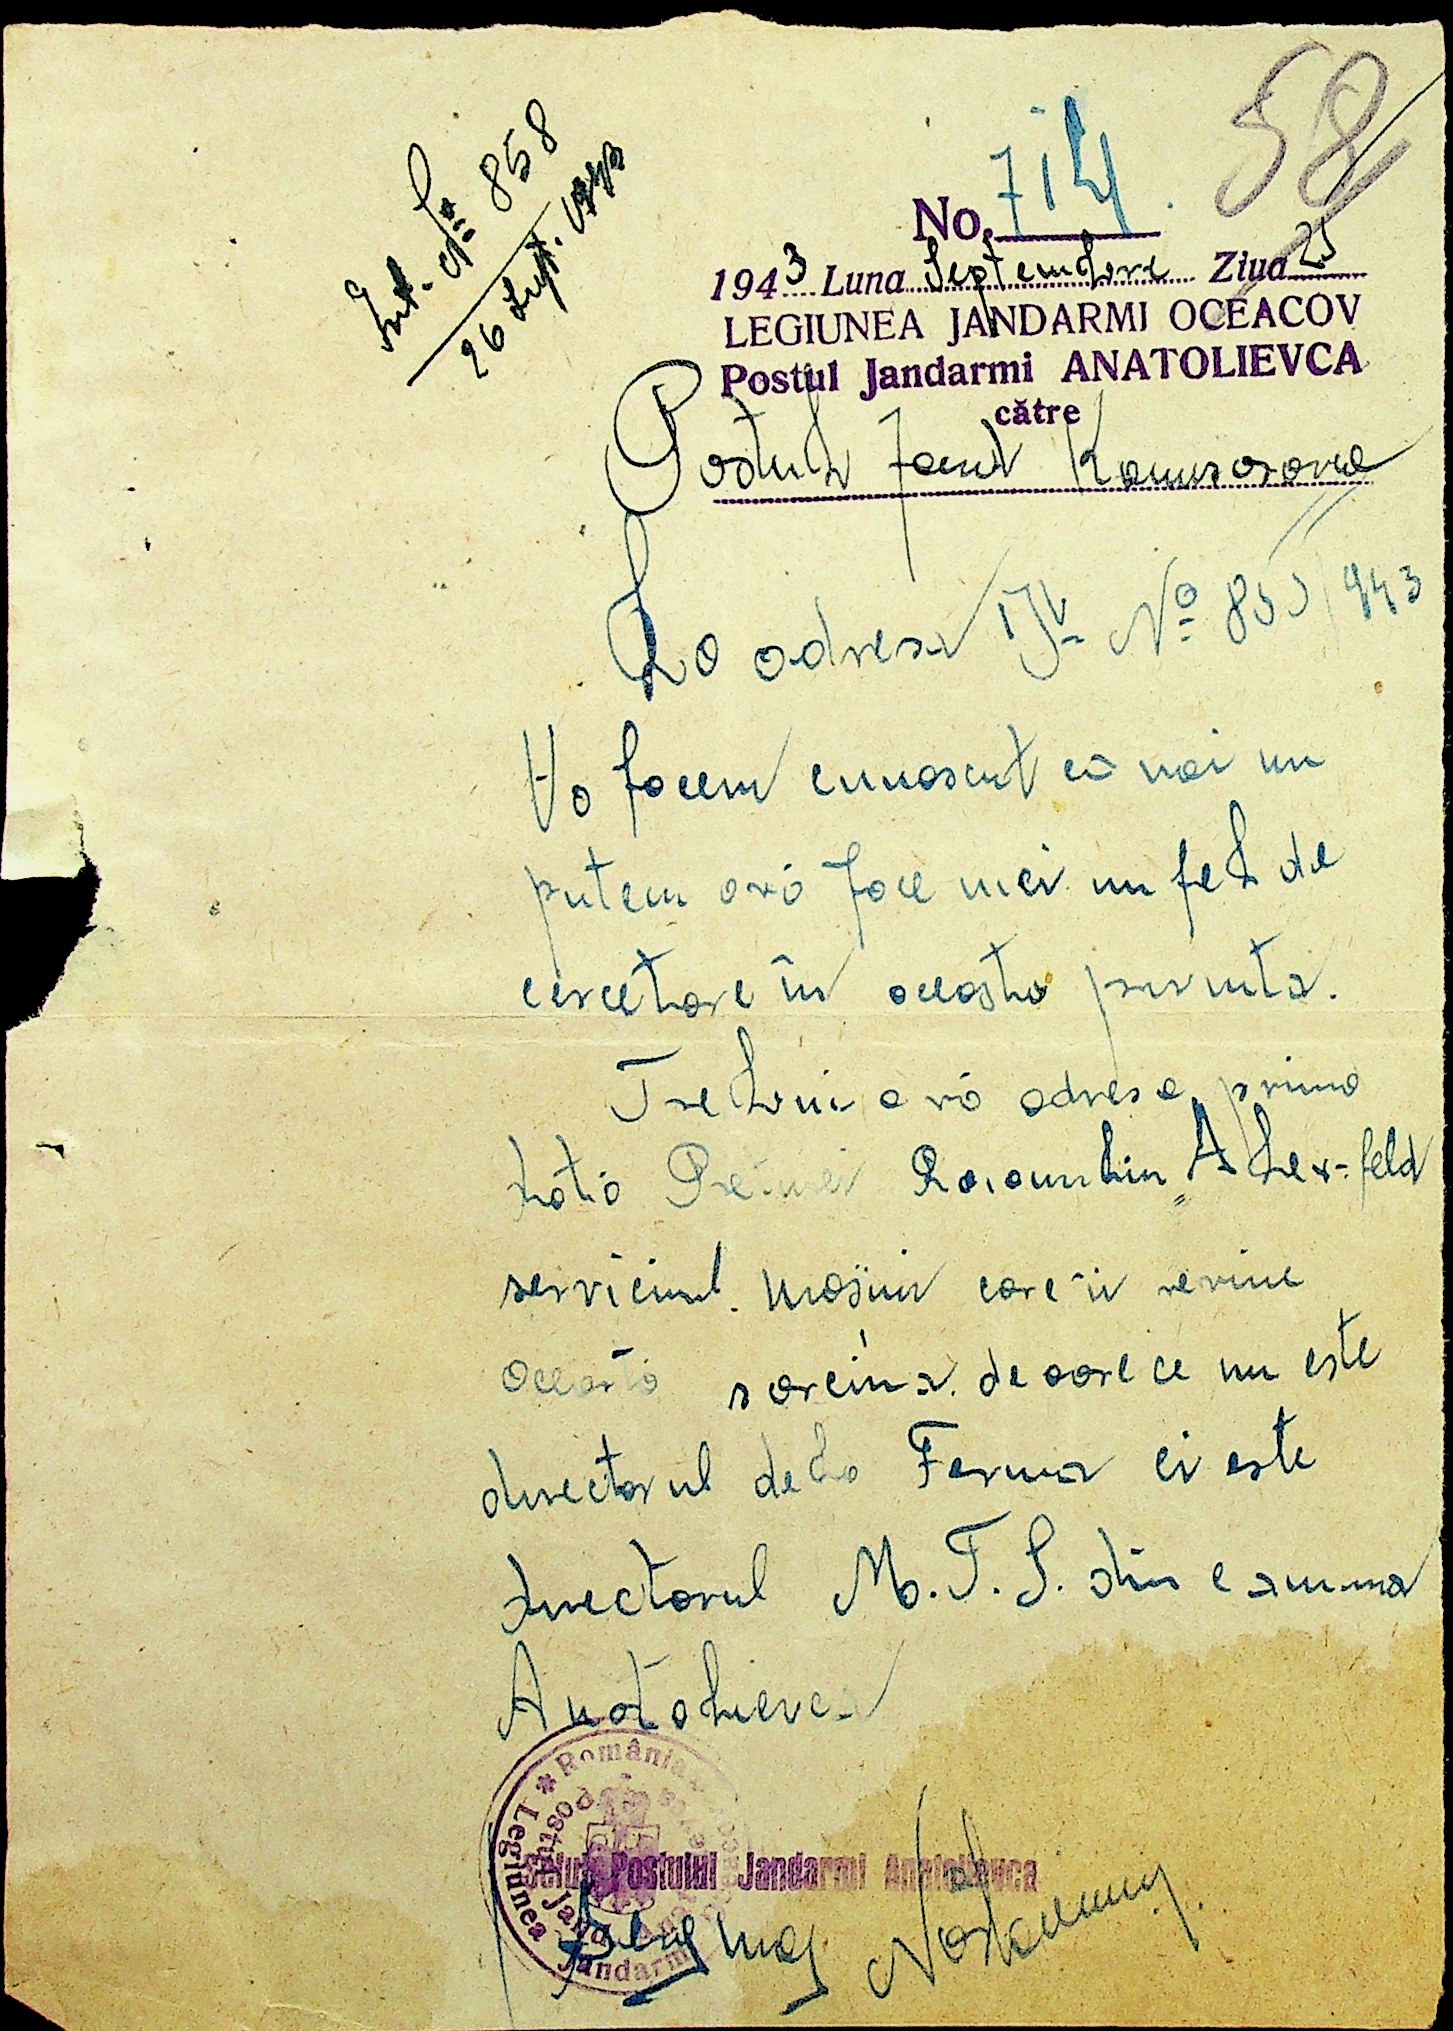 58
Int. No 858
26 Sept. 1943
No. 714
1943 Luna Septembrie Ziua 25
LEGIUNEA JANDARMI OCEACOV
Postul Jandarmi ANATOLIEVCA
către
Postul Jand
La adresa Dv. No 855/943
Vă facem cunoscut că noi nu
putem a vă face nici un fel de
cercetare în această privință.
Trebuie a vă adresa prima
dată Preturei Raionului A lex-feld
serviciul mașini care îi revine
această sarcină deoarece nu este
directorul dela Ferma ci este
directorul M.T.S. din comuna
Anatolievca
România
Legiunea Jandarmi
Postul Jand.
Șeful Postului Jandarmi Anatolievca